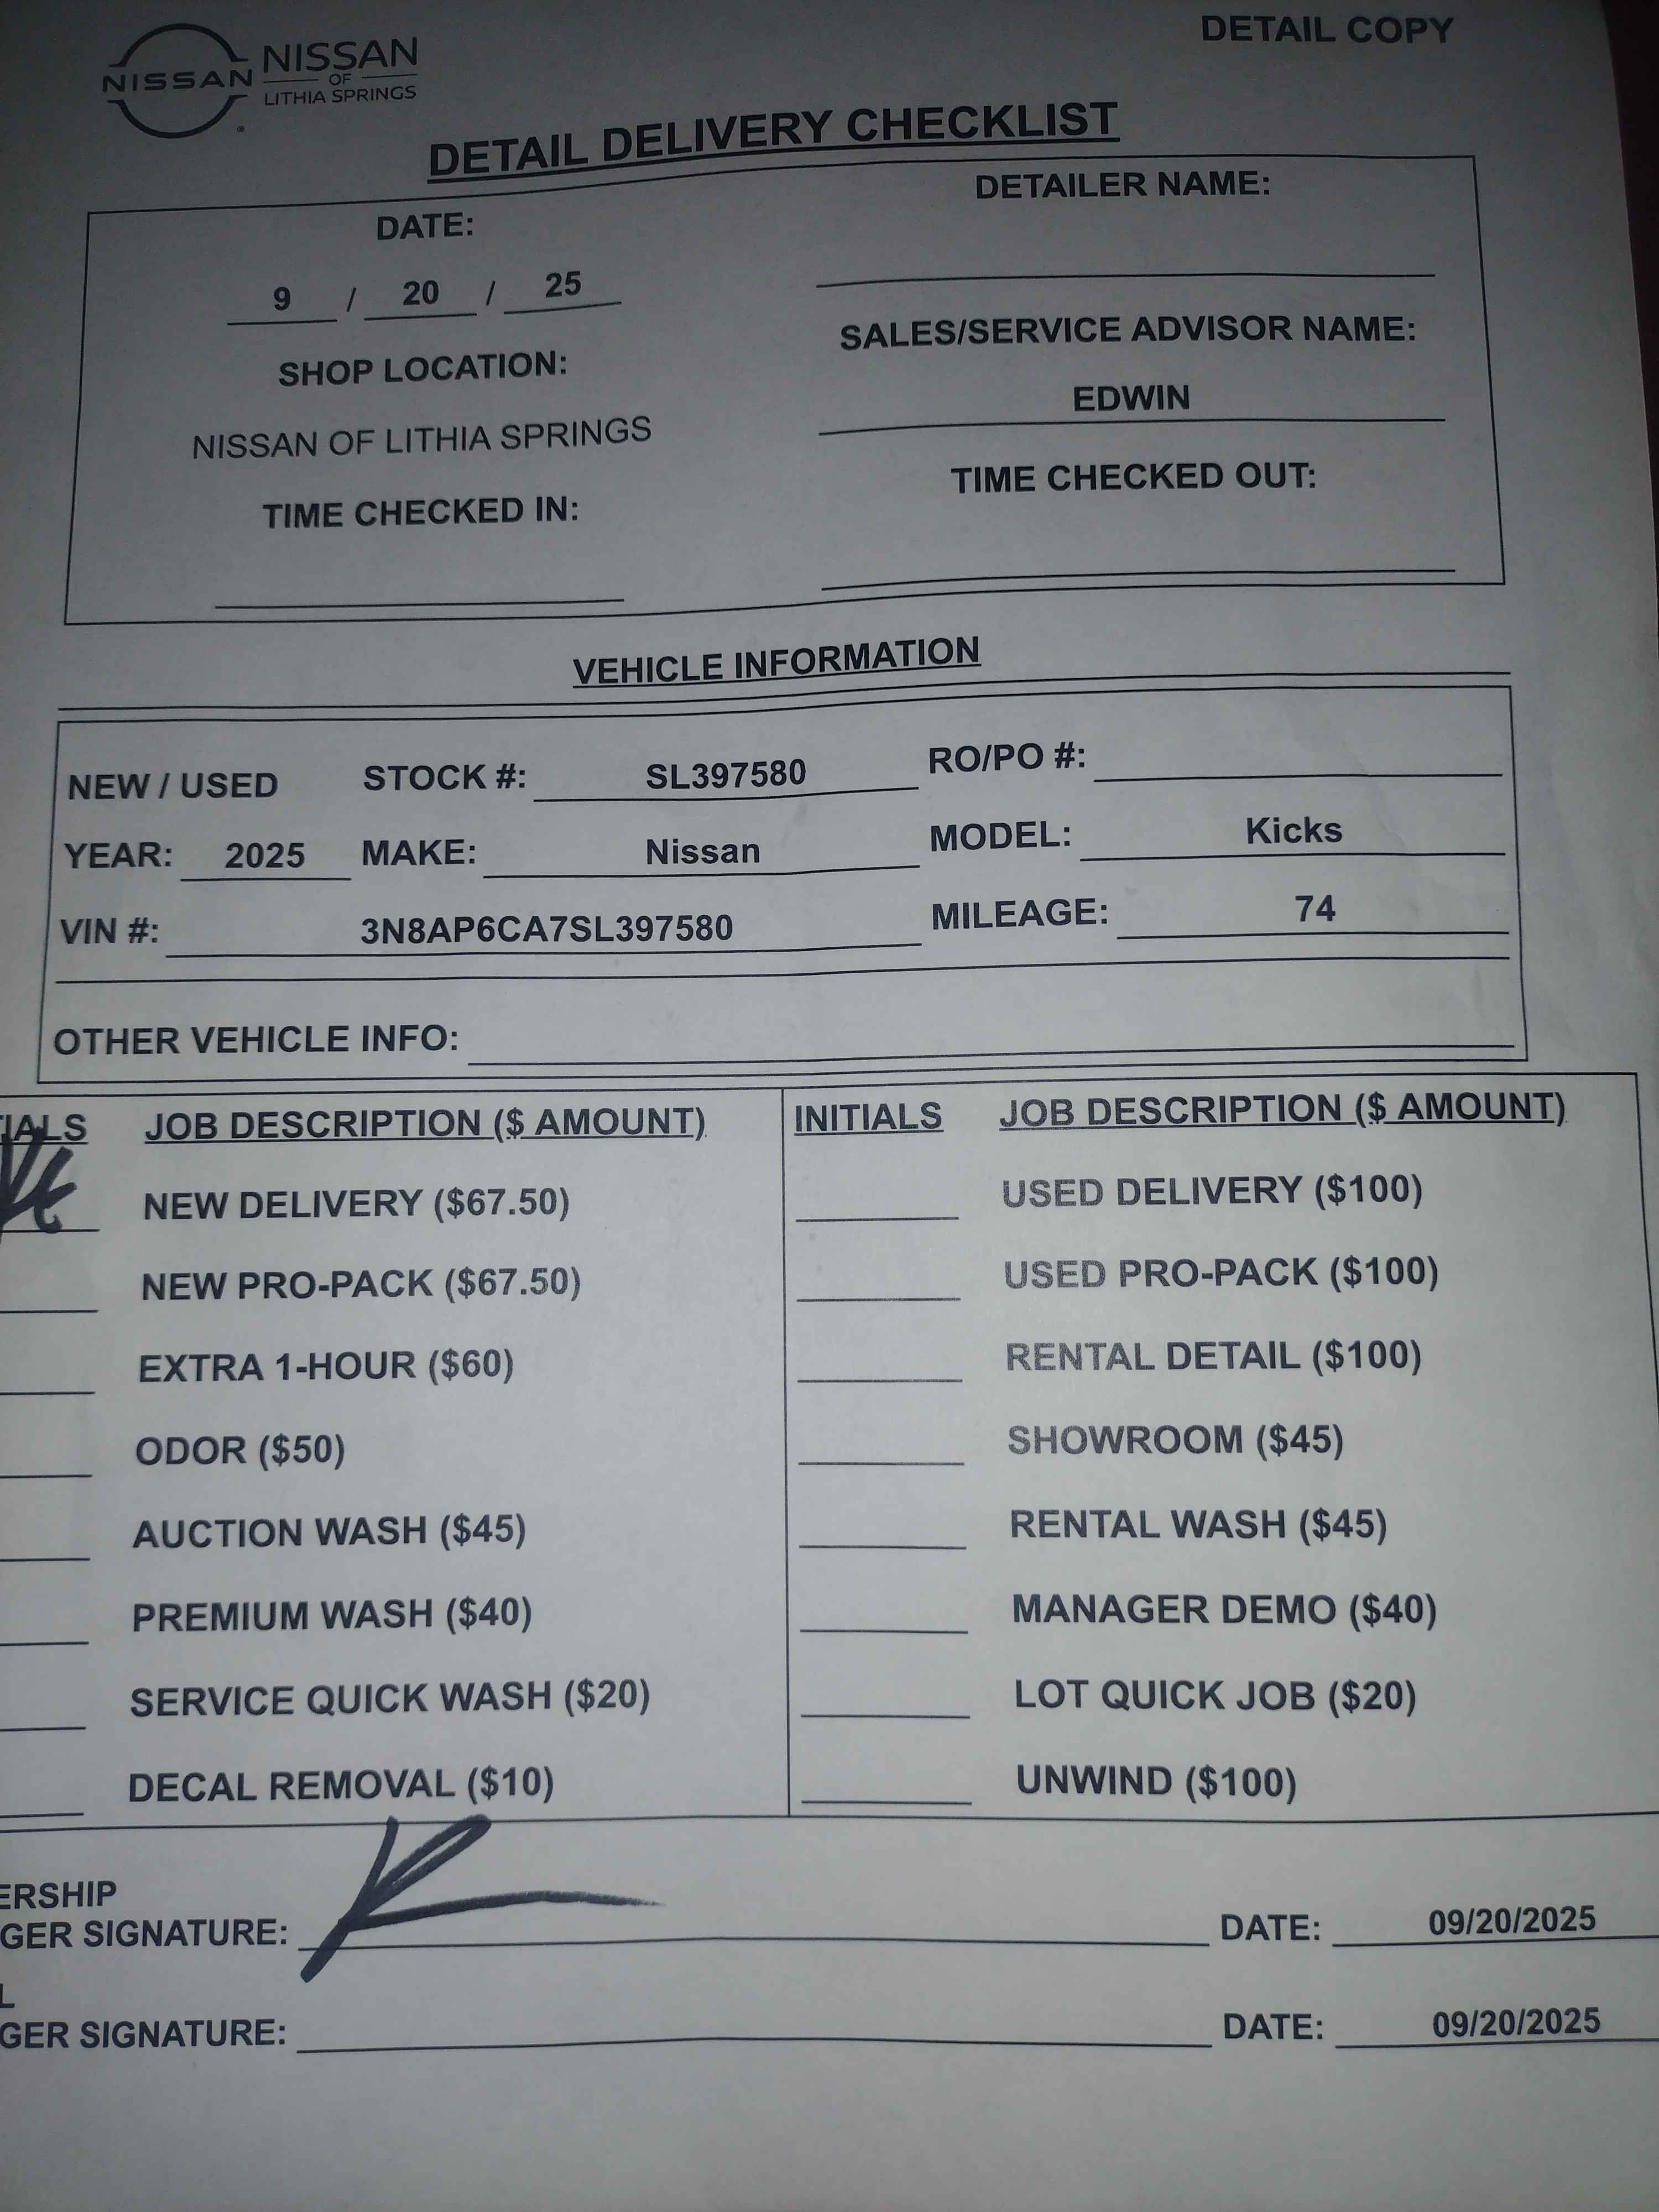 DETAIL COPY
NISSAN
NISSAN
OF
LITHIA SPRINGS
DETAIL DELIVERY CHECKLIST
DATE:
9 / 20 / 25
SHOP LOCATION:
NISSAN OF LITHIA SPRINGS
TIME CHECKED IN:
DETAILER NAME:
SALES/SERVICE ADVISOR NAME:
EDWIN
TIME CHECKED OUT:
VEHICLE INFORMATION
NEW / USED STOCK #: SL397580 RO/PO #:
YEAR: 2025 MAKE: Nissan MODEL: Kicks
VIN #: 3N8AP6CA7SL397580 MILEAGE: 74
OTHER VEHICLE INFO:
IALS JOB DESCRIPTION ($ AMOUNT)
NEW DELIVERY ($67.50)
NEW PRO-PACK ($67.50)
EXTRA 1-HOUR ($60)
ODOR ($50)
AUCTION WASH ($45)
PREMIUM WASH ($40)
SERVICE QUICK WASH ($20)
DECAL REMOVAL ($10)
INITIALS JOB DESCRIPTION ($ AMOUNT)
USED DELIVERY ($100)
USED PRO-PACK ($100)
RENTAL DETAIL ($100)
SHOWROOM ($45)
RENTAL WASH ($45)
MANAGER DEMO ($40)
LOT QUICK JOB ($20)
UNWIND ($100)
ERSHIP
GER SIGNATURE: DATE: 09/20/2025
L
GER SIGNATURE: DATE: 09/20/2025